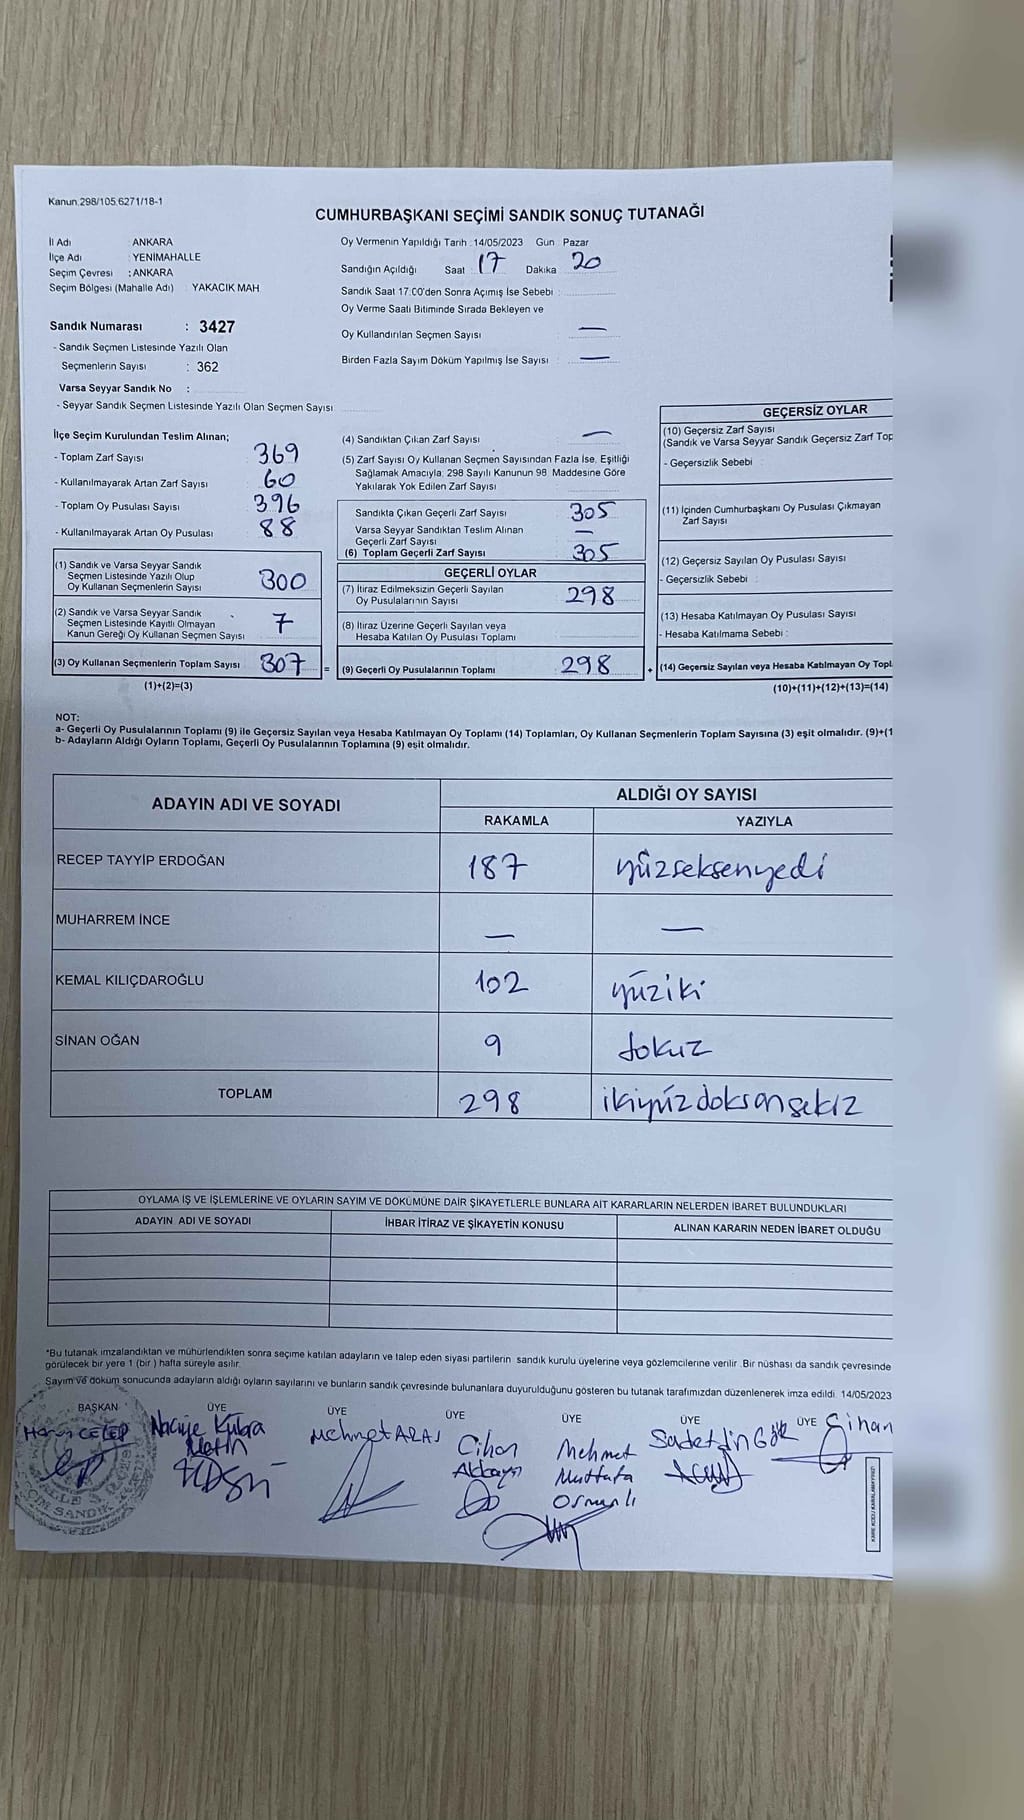 Kanun.298/105.6271/18-1
CUMHURBAŞKANI SEÇİMİ SANDIK SONUÇ TUTANAĞI
İl Adı : ANKARA
İlçe Adı : YENİMAHALLE
Seçim Çevresi : ANKARA
Seçim Bölgesi (Mahalle Adı) : YAKACIK MAH.
Sandık Numarası : 3427
- Sandık Seçmen Listesinde Yazılı Olan
Seçmenlerin Sayısı : 362
Varsa Seyyar Sandık No :
- Seyyar Sandık Seçmen Listesinde Yazılı Olan Seçmen Sayısı
Oy Vermenin Yapıldığı Tarih : 14/05/2023 Gün : Pazar
Sandığın Açıldığı Saat 17 Dakika 20
Sandık Saat 17:00'den Sonra Açımış İse Sebebi :
Oy Verme Saati Bitiminde Sırada Bekleyen ve
Oy Kullandırılan Seçmen Sayısı —
Birden Fazla Sayım Döküm Yapılmış İse Sayısı : —
İlçe Seçim Kurulundan Teslim Alınan;
- Toplam Zarf Sayısı 369
- Kullanılmayarak Artan Zarf Sayısı 60
- Toplam Oy Pusulası Sayısı 396
- Kullanılmayarak Artan Oy Pusulası 88
(1) Sandık ve Varsa Seyyar Sandık
Seçmen Listesinde Yazılı Olup
Oy Kullanan Seçmenlerin Sayısı 300
(2) Sandık ve Varsa Seyyar Sandık
Seçmen Listesinde Kayıtlı Olmayan
Kanun Gereği Oy Kullanan Seçmen Sayısı 7
(3) Oy Kullanan Seçmenlerin Toplam Sayısı 307 =
(1)+(2)=(3)
(4) Sandıktan Çıkan Zarf Sayısı —
(5) Zarf Sayısı Oy Kullanan Seçmen Sayısından Fazla İse, Eşitliği
Sağlamak Amacıyla; 298 Sayılı Kanunun 98. Maddesine Göre
Yakılarak Yok Edilen Zarf Sayısı
Sandıkta Çıkan Geçerli Zarf Sayısı 305
Varsa Seyyar Sandıktan Teslim Alınan
Geçerli Zarf Sayısı —
(6) Toplam Geçerli Zarf Sayısı 305
GEÇERLİ OYLAR
(7) İtiraz Edilmeksizin Geçerli Sayılan
Oy Pusulalarının Sayısı 298
(8) İtiraz Üzerine Geçerli Sayılan veya
Hesaba Katılan Oy Pusulası Toplamı
(9) Geçerli Oy Pusulalarının Toplamı 298 +
GEÇERSİZ OYLAR
(10) Geçersiz Zarf Sayısı
(Sandık ve Varsa Seyyar Sandık Geçersiz Zarf Top
- Geçersizlik Sebebi :
(11) İçinden Cumhurbaşkanı Oy Pusulası Çıkmayan
Zarf Sayısı
(12) Geçersiz Sayılan Oy Pusulası Sayısı
- Geçersizlik Sebebi :
(13) Hesaba Katılmayan Oy Pusulası Sayısı
- Hesaba Katılmama Sebebi :
(14) Geçersiz Sayılan veya Hesaba Katılmayan Oy Topl
(10)+(11)+(12)+(13)=(14)
NOT:
a- Geçerli Oy Pusulalarının Toplamı (9) ile Geçersiz Sayılan veya Hesaba Katılmayan Oy Toplamı (14) Toplamları, Oy Kullanan Seçmenlerin Toplam Sayısına (3) eşit olmalıdır. (9)+(1
b- Adayların Aldığı Oyların Toplamı, Geçerli Oy Pusulalarının Toplamına (9) eşit olmalıdır.
ADAYIN ADI VE SOYADI ALDIĞI OY SAYISI
RAKAMLA YAZIYLA
RECEP TAYYİP ERDOĞAN 187 yüzseksenyedi
MUHARREM İNCE — —
KEMAL KILIÇDAROĞLU 102 yüziki
SİNAN OĞAN 9 dokuz
TOPLAM 298 ikiyüzdoksansekiz
OYLAMA İŞ VE İŞLEMLERİNE VE OYLARIN SAYIM VE DÖKÜMÜNE DAİR ŞİKAYETLERLE BUNLARA AİT KARARLARIN NELERDEN İBARET BULUNDUKLARI
ADAYIN ADI VE SOYADI İHBAR İTİRAZ VE ŞİKAYETİN KONUSU ALINAN KARARIN NEDEN İBARET OLDUĞU
*Bu tutanak imzalandıktan ve mühürlendikten sonra seçime katılan adayların ve talep eden siyasi partilerin sandık kurulu üyelerine veya gözlemcilerine verilir. Bir nüshası da sandık çevresinde
görülecek bir yere 1 (bir) hafta süreyle asılır.
Sayım ve döküm sonucunda adayların aldığı oyların sayılarını ve bunların sandık çevresinde bulunanlara duyurulduğunu gösteren bu tutanak tarafımızdan düzenlenerek imza edildi. 14/05/2023
BAŞKAN ÜYE ÜYE ÜYE ÜYE ÜYE ÜYE
Harun CELEP
Naciye Kübra
Metin
Mehmet ARAS
Cihan
Akbayır
Mehmet
Mustafa
Osmanlı
Sadettin Gök
Sinan
SANDIK
KARE KODU KARALAMAYINIZ!